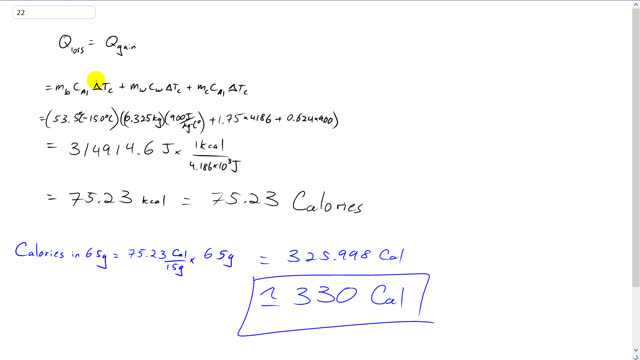 22
Q loss = Q gain
= m_b C_Al ΔT_c + m_w C_w ΔT_c + m_c C_Al ΔT_c
= (53.5°C - 15.0°C) (0.325kg) (900 J/kg C° + 1.75 × 4186 + 0.624 × 900)
= 314914.6 J × 1 kcal / 4.186 × 10³ J
= 75.23 kcal = 75.23 Calories
Calories in 65g = 75.23 Cal / 15g × 65g = 325.998 Cal
≃ 330 Cal